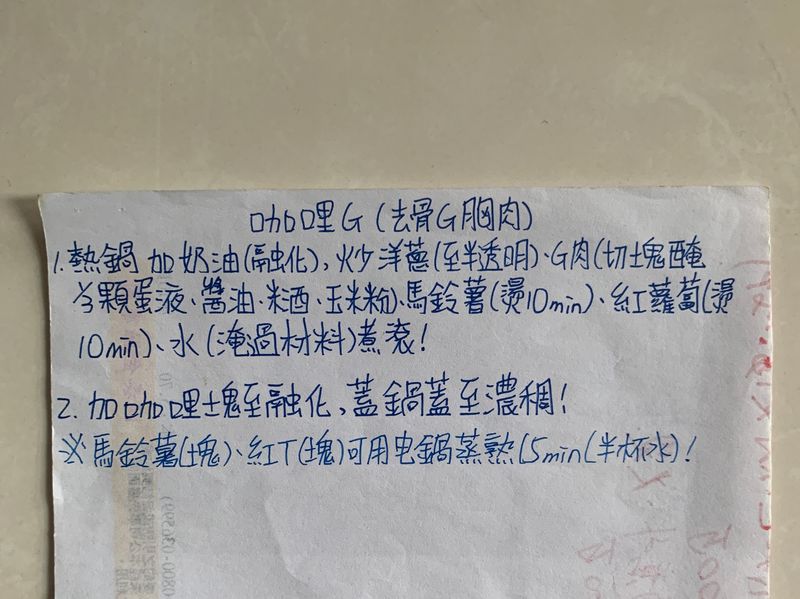 咖哩G(去骨G胸肉)
1.熱鍋加奶油(融化),炒洋蔥(至半透明)、G肉(切塊醃
⅓顆蛋液、醬油、米酒、玉米粉)、馬鈴薯(燙10min)、紅蘿蔔(燙
10min)、水(淹過材料)煮滾!
2.加咖哩塊至融化,蓋鍋蓋至濃稠!
※馬鈴薯(塊)、紅T(塊)可用电鍋蒸熟15min(半杯水)!